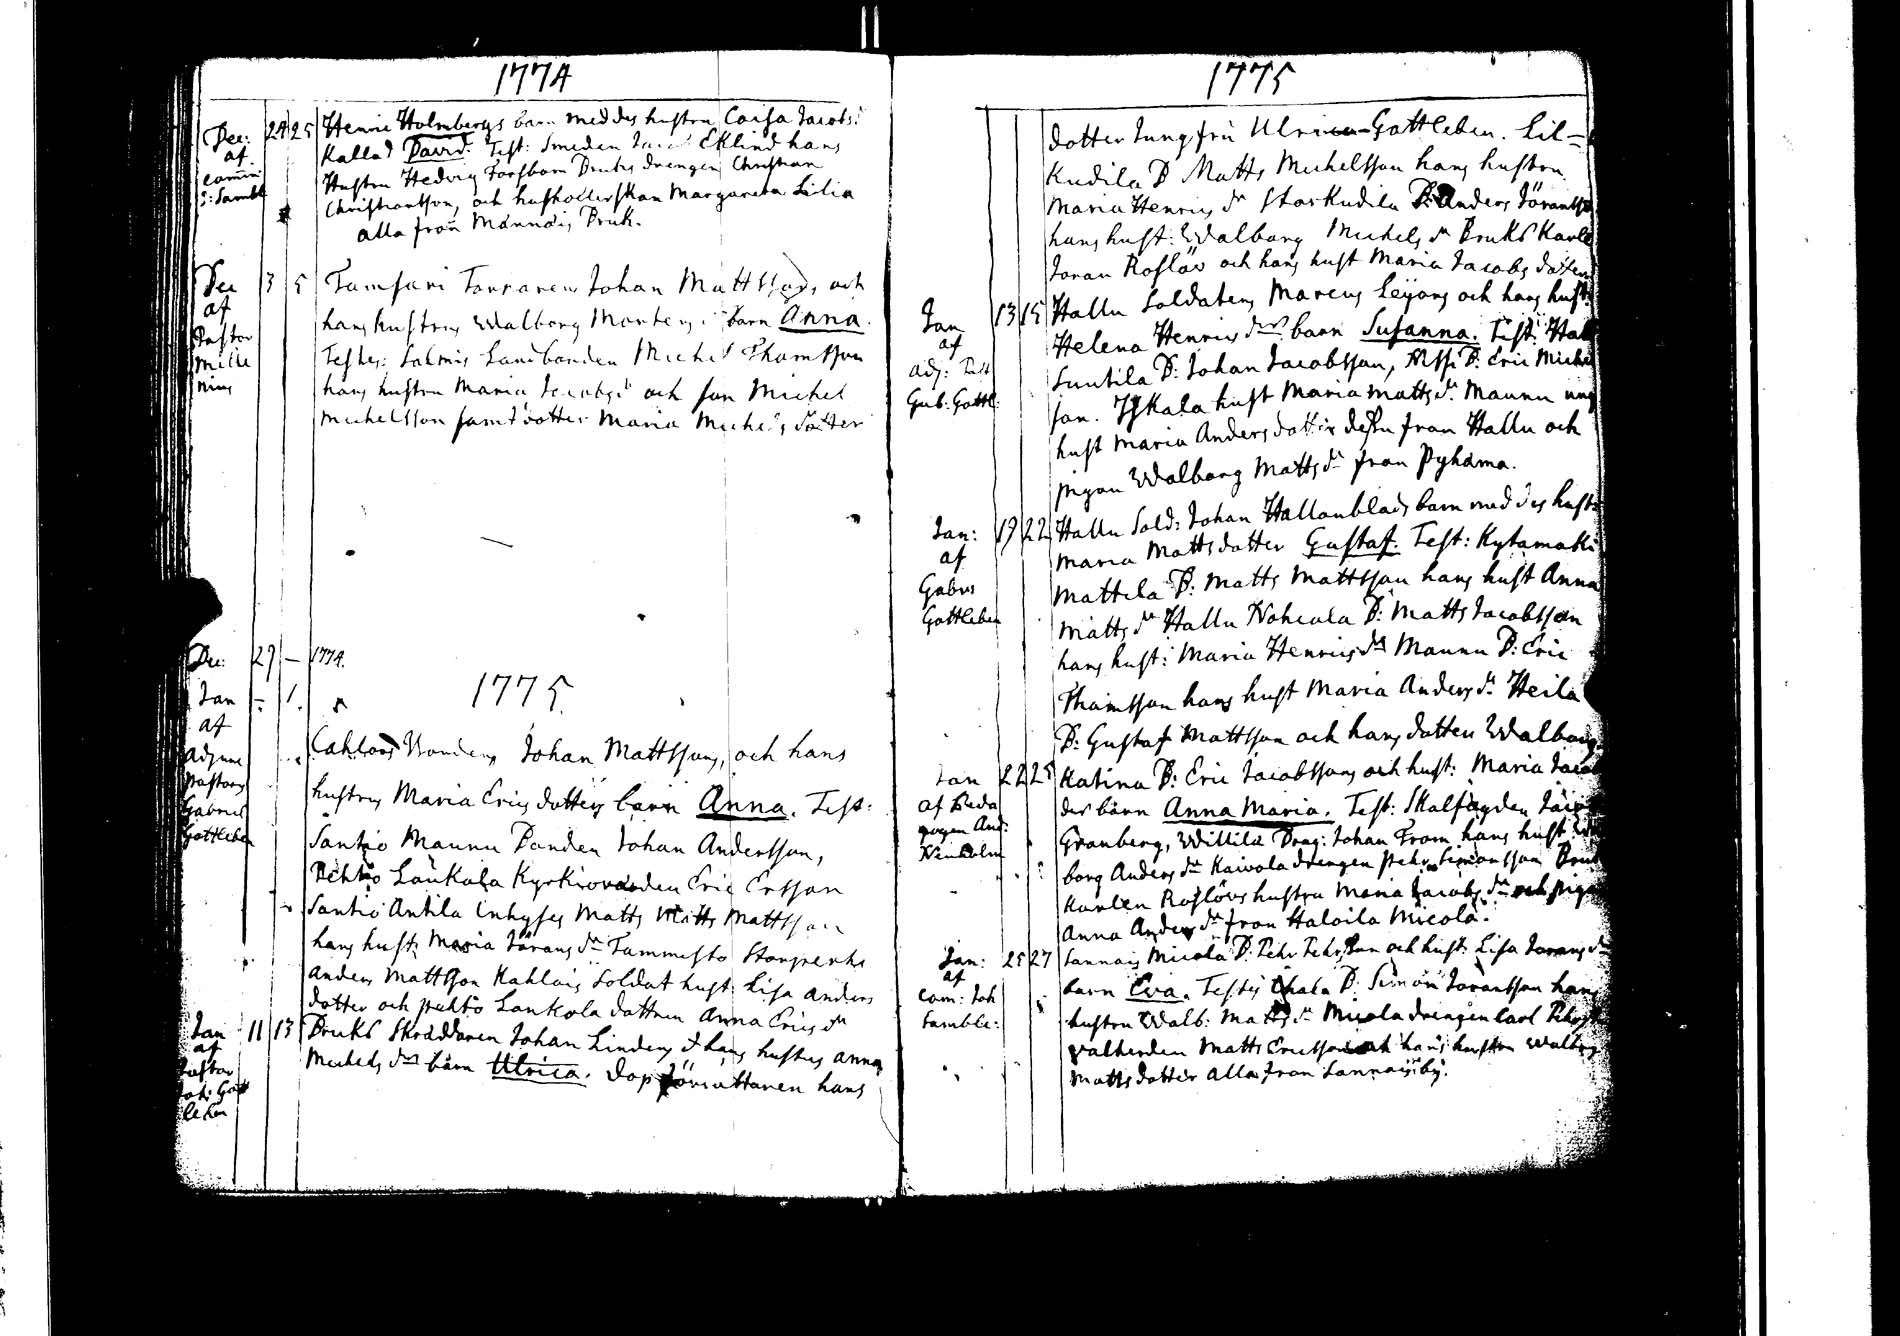 1774
Dec: 24 25 Henric Holmbergs barn med des hustru Caisa Jacobs:
af Kallad David. Test: Smeden Eklind hans
comin: Hustru Hedvig Forsbom Bruks drengen Christian
Christiansson, och hushollerskan Margareta Lilia
alla från Mannäis Bruk.
Dec 3 5 Tamsari Johan Mattssons och
af hans hustrus Walborg Mortens barn Anna.
Pastor Testes: Salmis Landbonden Michel Thomsson
hans hustru Maria Jacobs dr och son Michel
Michelsson samt dotter Maria Michels dotter
Dec: 29 — 1774.
1775
Jan — 1.
af
Adjunc Johan Mattssons, och hans
Pastors hustrus Maria Erics dotters barn Anna. Test:
Gabriel Santio Maunu Bonden Johan Andersson,
Gottleben Kyrkiovärden Eric Ersson
Santio Antila Inhyses Matts Matts Mattsson
hans hust: Maria Jörans dr Tammisto
Anders Mattsson Kahlois Soldat hust: Lisa Anders
dotter och Lankola dottren Anna Erics dr
Jan 11 13 Bruks Skräddaren Johan Lindens & hans hustrus Anna
af Michels drs barn Ulrica. Dop förrättaren hans
Pastor
Joh: Gott
leben
1775
dotter Jungfru Ulrica Gottleben. Lil-
Kudila B Matts Michelsson hans hustru
Maria Henrics dr Storkudila B: Anders Jöransso
hans hust: Walborg Michels dr Bruks Karle
Joran Roslöv och hans hust Maria Jacobs dotter
Jan 13 15 Hallu Soldatens Marcus Leijons och hans hust:
af Helena Henrics drs barn Susanna. Test: Hal
adj: Past Suutila B: Johan Jacobsson, B: Eric Miche
Gab: Gottl: son. Yskala hust Maria Matts dr Maunu ung
hust Maria Anders dotter dessa från Hallu och
pigan Walborg Matts dr från Pyhäma.
Jan: 19 22 Hallu Sold: Johan Hallonblads barn med des hust:
af Maria Mattsdotter Gustaf. Test: Kytämäki
Gabr: Mattila B: Matts Mattsson hans hust Anna
Gottleben Matts dr Hallu Nohcala B: Matts Jacobsson
hans hust: Maria Henrics dr Maunu B: Eric
Thomsson hans hust Maria Anders dr Heila
B: Gustaf Mattsson och hans dotter Walborg.
Jan 22 25 Katina B: Eric Jacobssons och hust: Maria Jacob
af Peda ders barn Anna Maria. Test:
gogen And: Granberg, Willila Drag: Johan From hans hust
borg Anders dr Kaivola drengen Pehr Simonsson Bruk
Karlen Roslövs hustru Maria Jacobs dr och pigan
Anna Anders dr från Haloila Micola.
Jan: 25 27 Lannäis Micola B: Pehr Pehrsson och hust: Lisa Jorans dr
af barn Eva. Testes B: Simon Joransson hans
Com: Joh hustru Walb: Matts dr Micola drengen Carl Pehrs
Matts Ericsson och hans hustru Walborg
Matts dotter alla från Lannäis by.